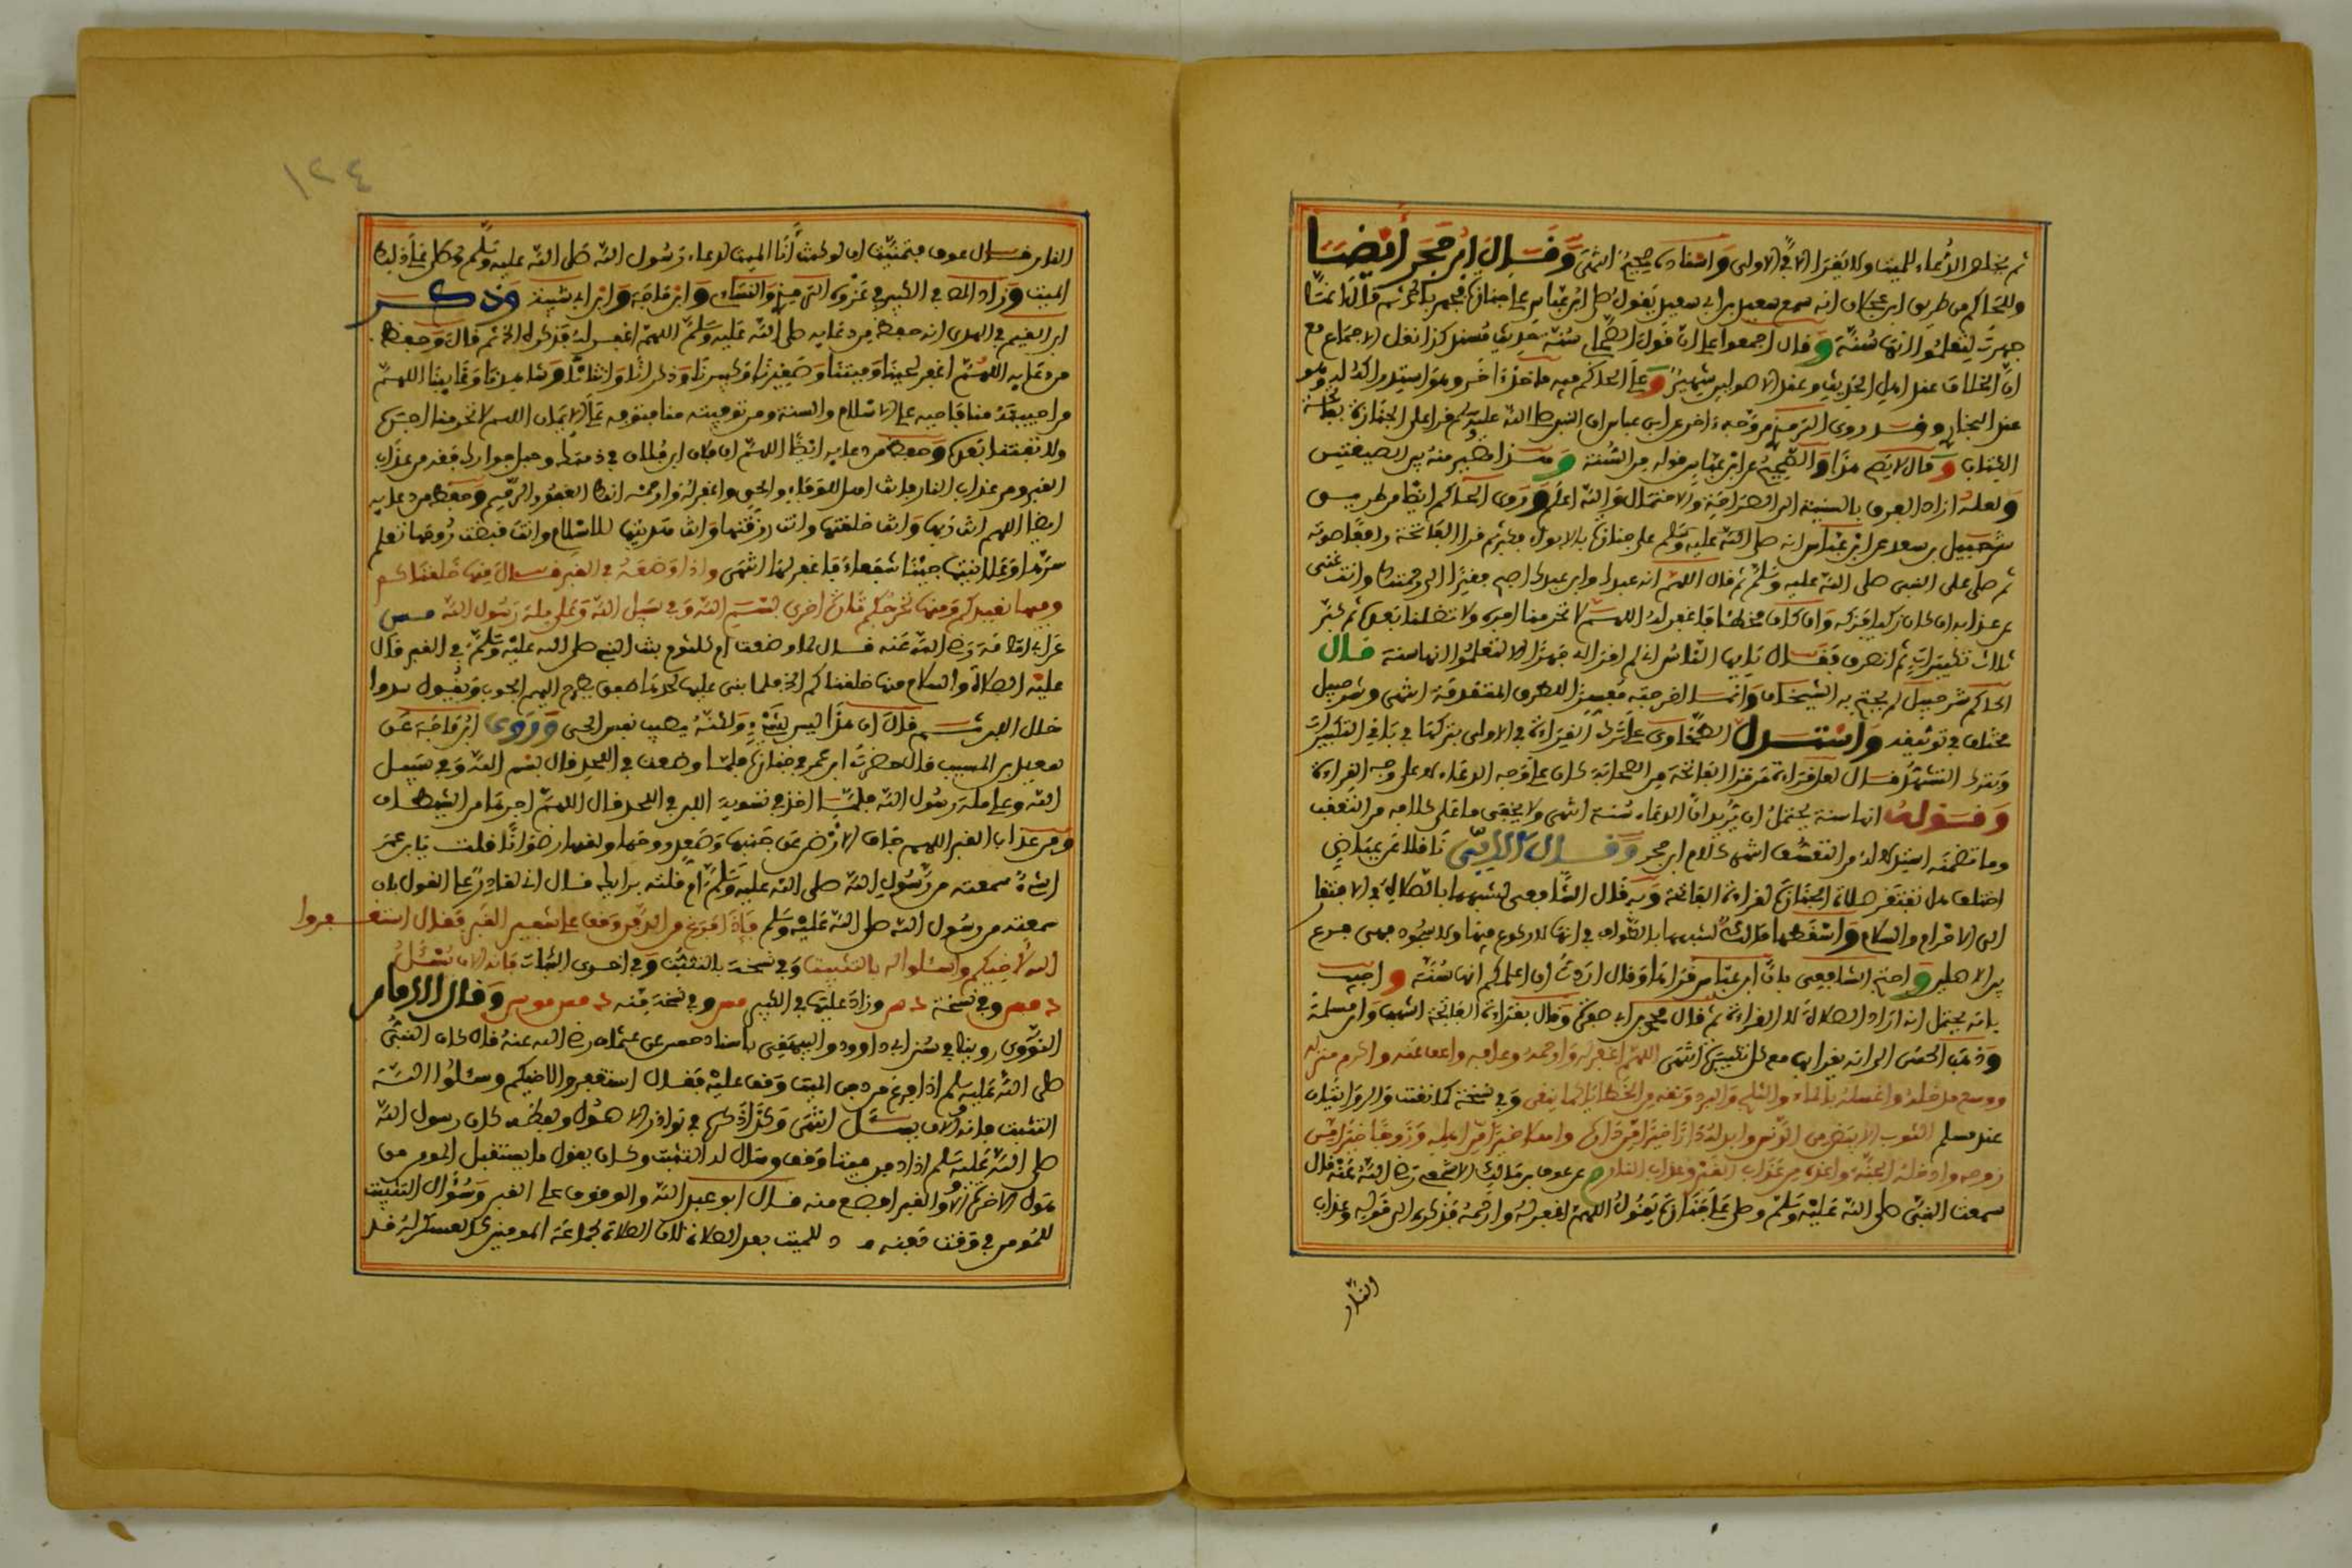 ثم يخلص الدعاء للميت ولا يقرأ الا في الاولى واسناده صحيح انتهى وقال ابن حجر أيضا
وللحاكم من طريق ابن عجلان انه سمع سعيد بن ابي سعيد يقول صلى ابن عباس على جنازة فجهر بالحمد ثم قال انما
جهرت لتعلموا انها سنة وقال اجمعوا على ان قول الصحابي سنة حديث مسند كذا نقل الاجماع مع
ان الخلاف عند اهل الحديث وعند الاصوليين شهير وعلى الحاكم فيه ماخذ اخر وهو استدراكه له وهو
عند البخاري وقد روى الترمذي من وجه اخر عن ابن عباس ان النبي صلى الله عليه وسلم قرأ على الجنازة بفاتحة
الكتاب وقال لا يصح هذا والصحيح عن ابن عباس قوله من السنة وهذا مصير منه الى الصيغتين
ولعله اراد الفرق بالنسبة الى الصراحة والاحتمال والله اعلم وروى الحاكم ايضا من طريق
شرحبيل بن سعد عن ابن عباس انه صلى على جنازة بالابواء فكبر ثم قرأ الفاتحة رافعا صوته
ثم صلى على النبي صلى الله عليه وسلم ثم قال اللهم انه عبدك وابن عبدك اصبح فقيرا الى رحمتك وانت غني
عن عذابه ان كان زكيا فزكه وان كان مخطئا فاغفر له اللهم لا تحرمنا اجره ولا تضلنا بعده ثم كبر
ثلاث تكبيرات ثم انصرف فقال يا ايها الناس اني لم اقرأ له جهرا الا لتعلموا انها سنة قال
الحاكم شرحبيل لم يحتج به الشيخان وانما اخرجته مفسرا للطرق المتقدمة انتهى وشرحبيل
مختلف في توثيقه واستدل الطحاوي على ترك القراءة في الاولى بتركها في باقي التكبيرات
وبترك التشهد قال لعل قراءة من قرأ الفاتحة من الصحابة كان على وجه الدعاء لا على وجه القراءة
وقوله انها سنة يحتمل ان يريد ان الدعاء سنة انتهى ولا يخفى ما على كلامه من التعقب
وما تضمنه استدلاله من التعسف انتهى كلام ابن حجر وقال الأبي ناقلا عن عياض
اختلف هل تفتقر صلاة الجنازة لقراءة الفاتحة وبه قال الشافعي لشبهها بالصلاة في الافتقار
الى الاحرام والسلام واسقطها مالك لشبهها بالطواف في انها لا ركوع فيها ولا سجود فهي فرع
بين الاصلين واحتج الشافعي بان ابن عباس قرأها وقال اردت ان اعلمكم انها سنة واجيب
بانه يحتمل انه اراد الصلاة لا القراءة ثم قال محمد بن ابي صفرة وقال بقراءة الفاتحة اشهب وابن مسلمة
وذهب الحسن الى انه يقرأ بها مع كل تكبيرة انتهى اللهم اغفر له وارحمه وعافه واعف عنه واكرم منزله
ووسع مدخله واغسله بالماء والثلج والبرد ونقه من الخطايا كما ينقى وفي نسخة كما نقيت والروايتان
عند مسلم الثوب الأبيض من الدنس وابدله دارا خيرا من داره واهلا خيرا من اهله وزوجا خيرا من
زوجه وادخله الجنة واعذه من عذاب القبر وعذاب النار م عن عوف بن مالك الاشجعي رضي الله عنه قال
سمعت النبي صلى الله عليه وسلم وصلى على جنازة يقول اللهم اغفر له وارحمه فذكره الى قوله وعذاب
النار
١٢٤
النار قال عوف فتمنيت ان لو كنت أنا الميت لدعاء رسول الله صلى الله عليه وسلم على ذلك
الميت وزاد المصنف في الكبير في عزوه الترمذي والنساءي وابن ماجة وابن ابي شيبة وذكر
ابن القيم في الهدى انه حفظ من دعايه صلى الله عليه وسلم اللهم اغفر له فذكره الخ ثم قال وحفظ
من دعايه اللهم اغفر لحينا وميتنا وصغيرنا وكبيرنا وذكرنا وانثانا وشاهدنا وغايبنا اللهم
من احييته منا فاحيه على الاسلام والسنة ومن توفيته منا فتوفه على الايمان اللهم لا تحرمنا اجره
ولا تفتنا بعده وحفظ من دعايه ايضا اللهم ان فلان ابن فلان في ذمتك وحبل جوارك فقه من عذاب
القبر ومن عذاب النار فانت اهل الوفاء والحق واغفر له وارحمه انك الغفور الرحيم وحفظ من دعايه
ايضا اللهم انت ربها وانت خلقتها وانت رزقتها وانت هديتها للاسلام وانت قبضت روحها تعلم
سرها وعلانيتها جئنا شفعاء فاغفر لها انتهى واذا وضعه في القبر قال منها خلقناكم
وفيها نعيدكم ومنها نخرجكم تارة اخرى بسم الله وفي سبيل الله وعلى ملة رسول الله مس
عن ابي امامة رضي الله عنه قال لما وضعت ام كلثوم بنت النبي صلى الله عليه وسلم في القبر قال
عليه الصلاة والسلام منها خلقناكم الخ فلما بنى عليها لحدها طفق يطرح اليهم الجبوب ويقول سدوا
خلال اللبن ثم قال ان هذا ليس بشيء ولكنه يطيب نفس الحي وروى ابن ماجة عن
سعيد بن المسيب قال حضرت ابن عمر في جنازة فلما وضعت في اللحد قال بسم الله وفي سبيل
الله وعلى ملة رسول الله فلما اخذ في تسوية اللبن في اللحد قال اللهم اجرها من الشيطان
ومن عذاب القبر اللهم جاف الارض عن جنبيها وصعد روحها ولقها رضوانا قلت يا ابن عمر
اشيء سمعته من رسول الله صلى الله عليه وسلم ام قلته برايك قال اني لقادر على القول بل
سمعته من رسول الله صلى الله عليه وسلم فاذا فرغ من الدفن وقف على شفير القبر فقال استغفروا
الله لأخيكم واسئلوا له بالتثبيت وفي نسخة بالتثبت وفي اخرى الثبات فانه الان يسئل
د مص وفي نسخة د مس وزاد عليها في الكبير مص وفي نسخة منه د مس مو مص وقال الامام
النووي روينا في سنن ابي داوود والبيهقي باسناد حسن عن عثمان رضي الله عنه قال كان النبي
صلى الله عليه وسلم اذا فرغ من دفن الميت وقف عليه فقال استغفروا لاخيكم وسئلوا الله
التثبيت فانه الان يسئل انتهى وكذا ذكره في نوادر الاصول ولفظه كان رسول الله
صلى الله عليه وسلم اذا دفن ميتا وقف وسال له التثبت وكان يقول ما يستقبل المومن من
هول الاخرة الا والقبر افضع منه قال ابو عبد الله والوقوف على القبر وسؤال التثبيت
للمومن في وقت دفنه للميت بعد الصلاة لان الصلاة لجماعة المومنين كالعسكر له قد